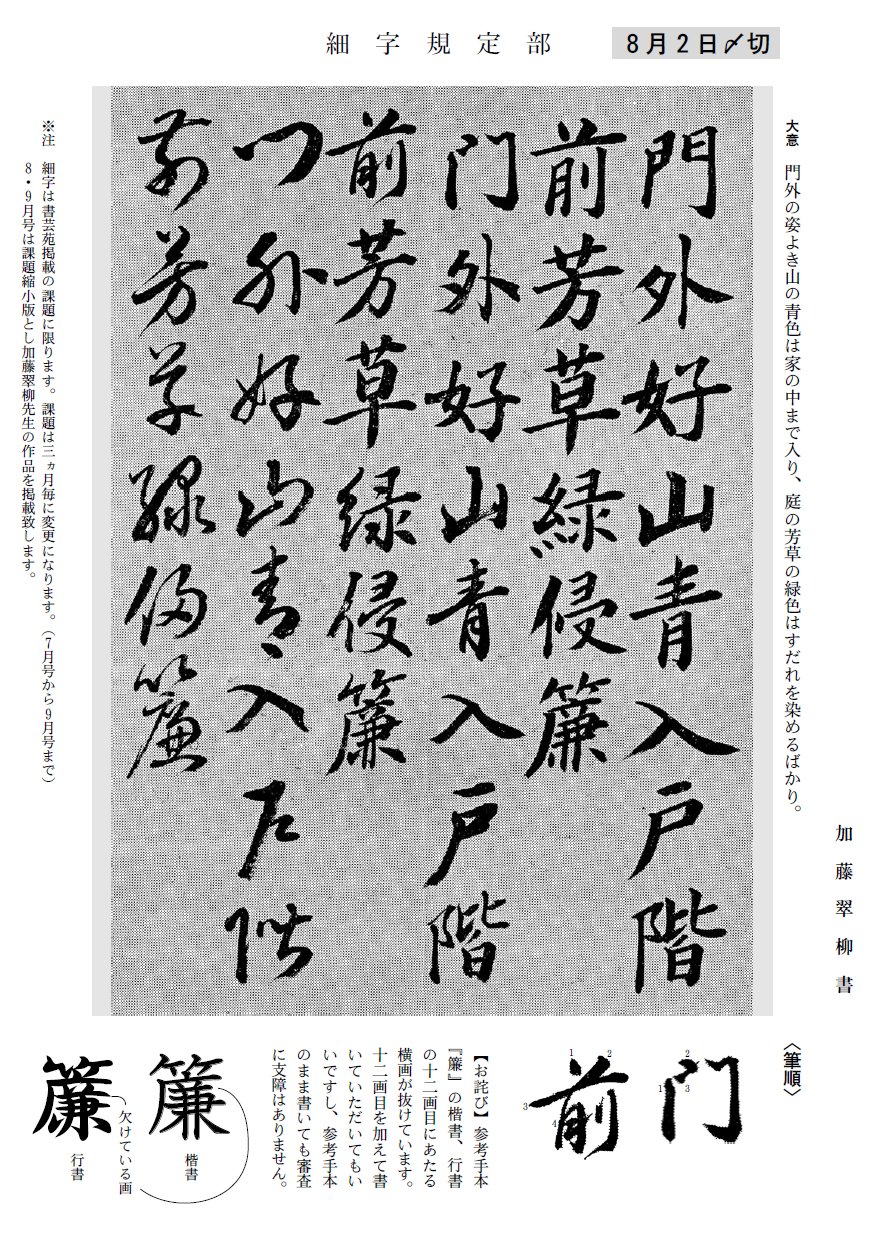 細字規定部
8月2日〆切
大意　門外の姿よき山の青色は家の中まで入り、庭の芳草の緑色はすだれを染めるばかり。
加藤翠柳書
門外好山青入戸階
前芳草緑侵簾
門外好山青入戸階
前芳草緑侵簾
門外好山青入戸階
前芳草緑侵簾
※注　細字は書芸苑掲載の課題に限ります。課題は三ヵ月毎に変更になります。（7月号から9月号まで）
8・9月号は課題縮小版とし加藤翠柳先生の作品を掲載致します。
〈筆順〉
門
1
2
3
前
1
2
3
4
【お詫び】参考手本
『簾』の楷書、行書
の十二画目にあたる
横画が抜けています。
十二画目を加えて書
いていただいてもい
いですし、参考手本
のまま書いても審査
に支障はありません。
簾
楷書
欠けている画
簾
行書